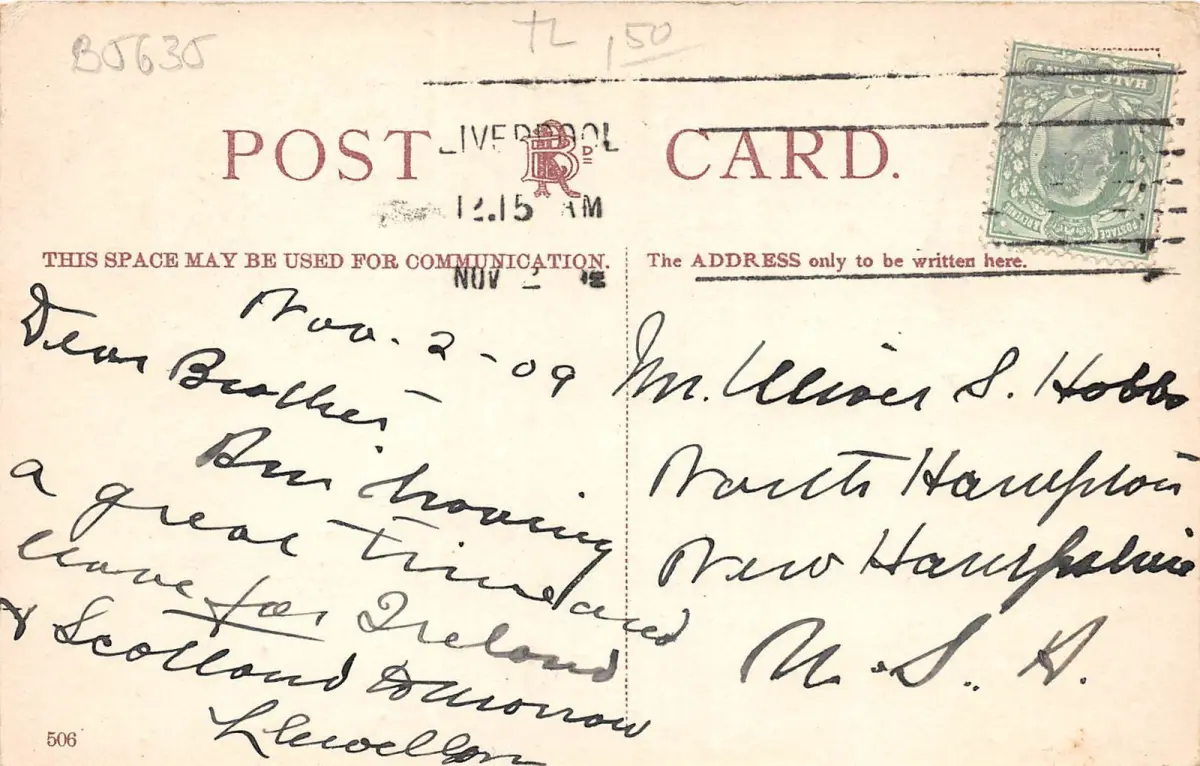 B5635
TL 1,50
POST CARD.
LIVERPOOL
12.15 AM
NOV 2
HALF PENNY
POSTAGE
THIS SPACE MAY BE USED FOR COMMUNICATION.
The ADDRESS only to be written here.
Nov. 2 - 09
Dear Brother
Am having
a great time and
leave for Ireland
& Scotland tomorrow
Llewellyn
Mr. Oliver S. Hobbs
North Hampton
New Hampshire
U.S.A.
506